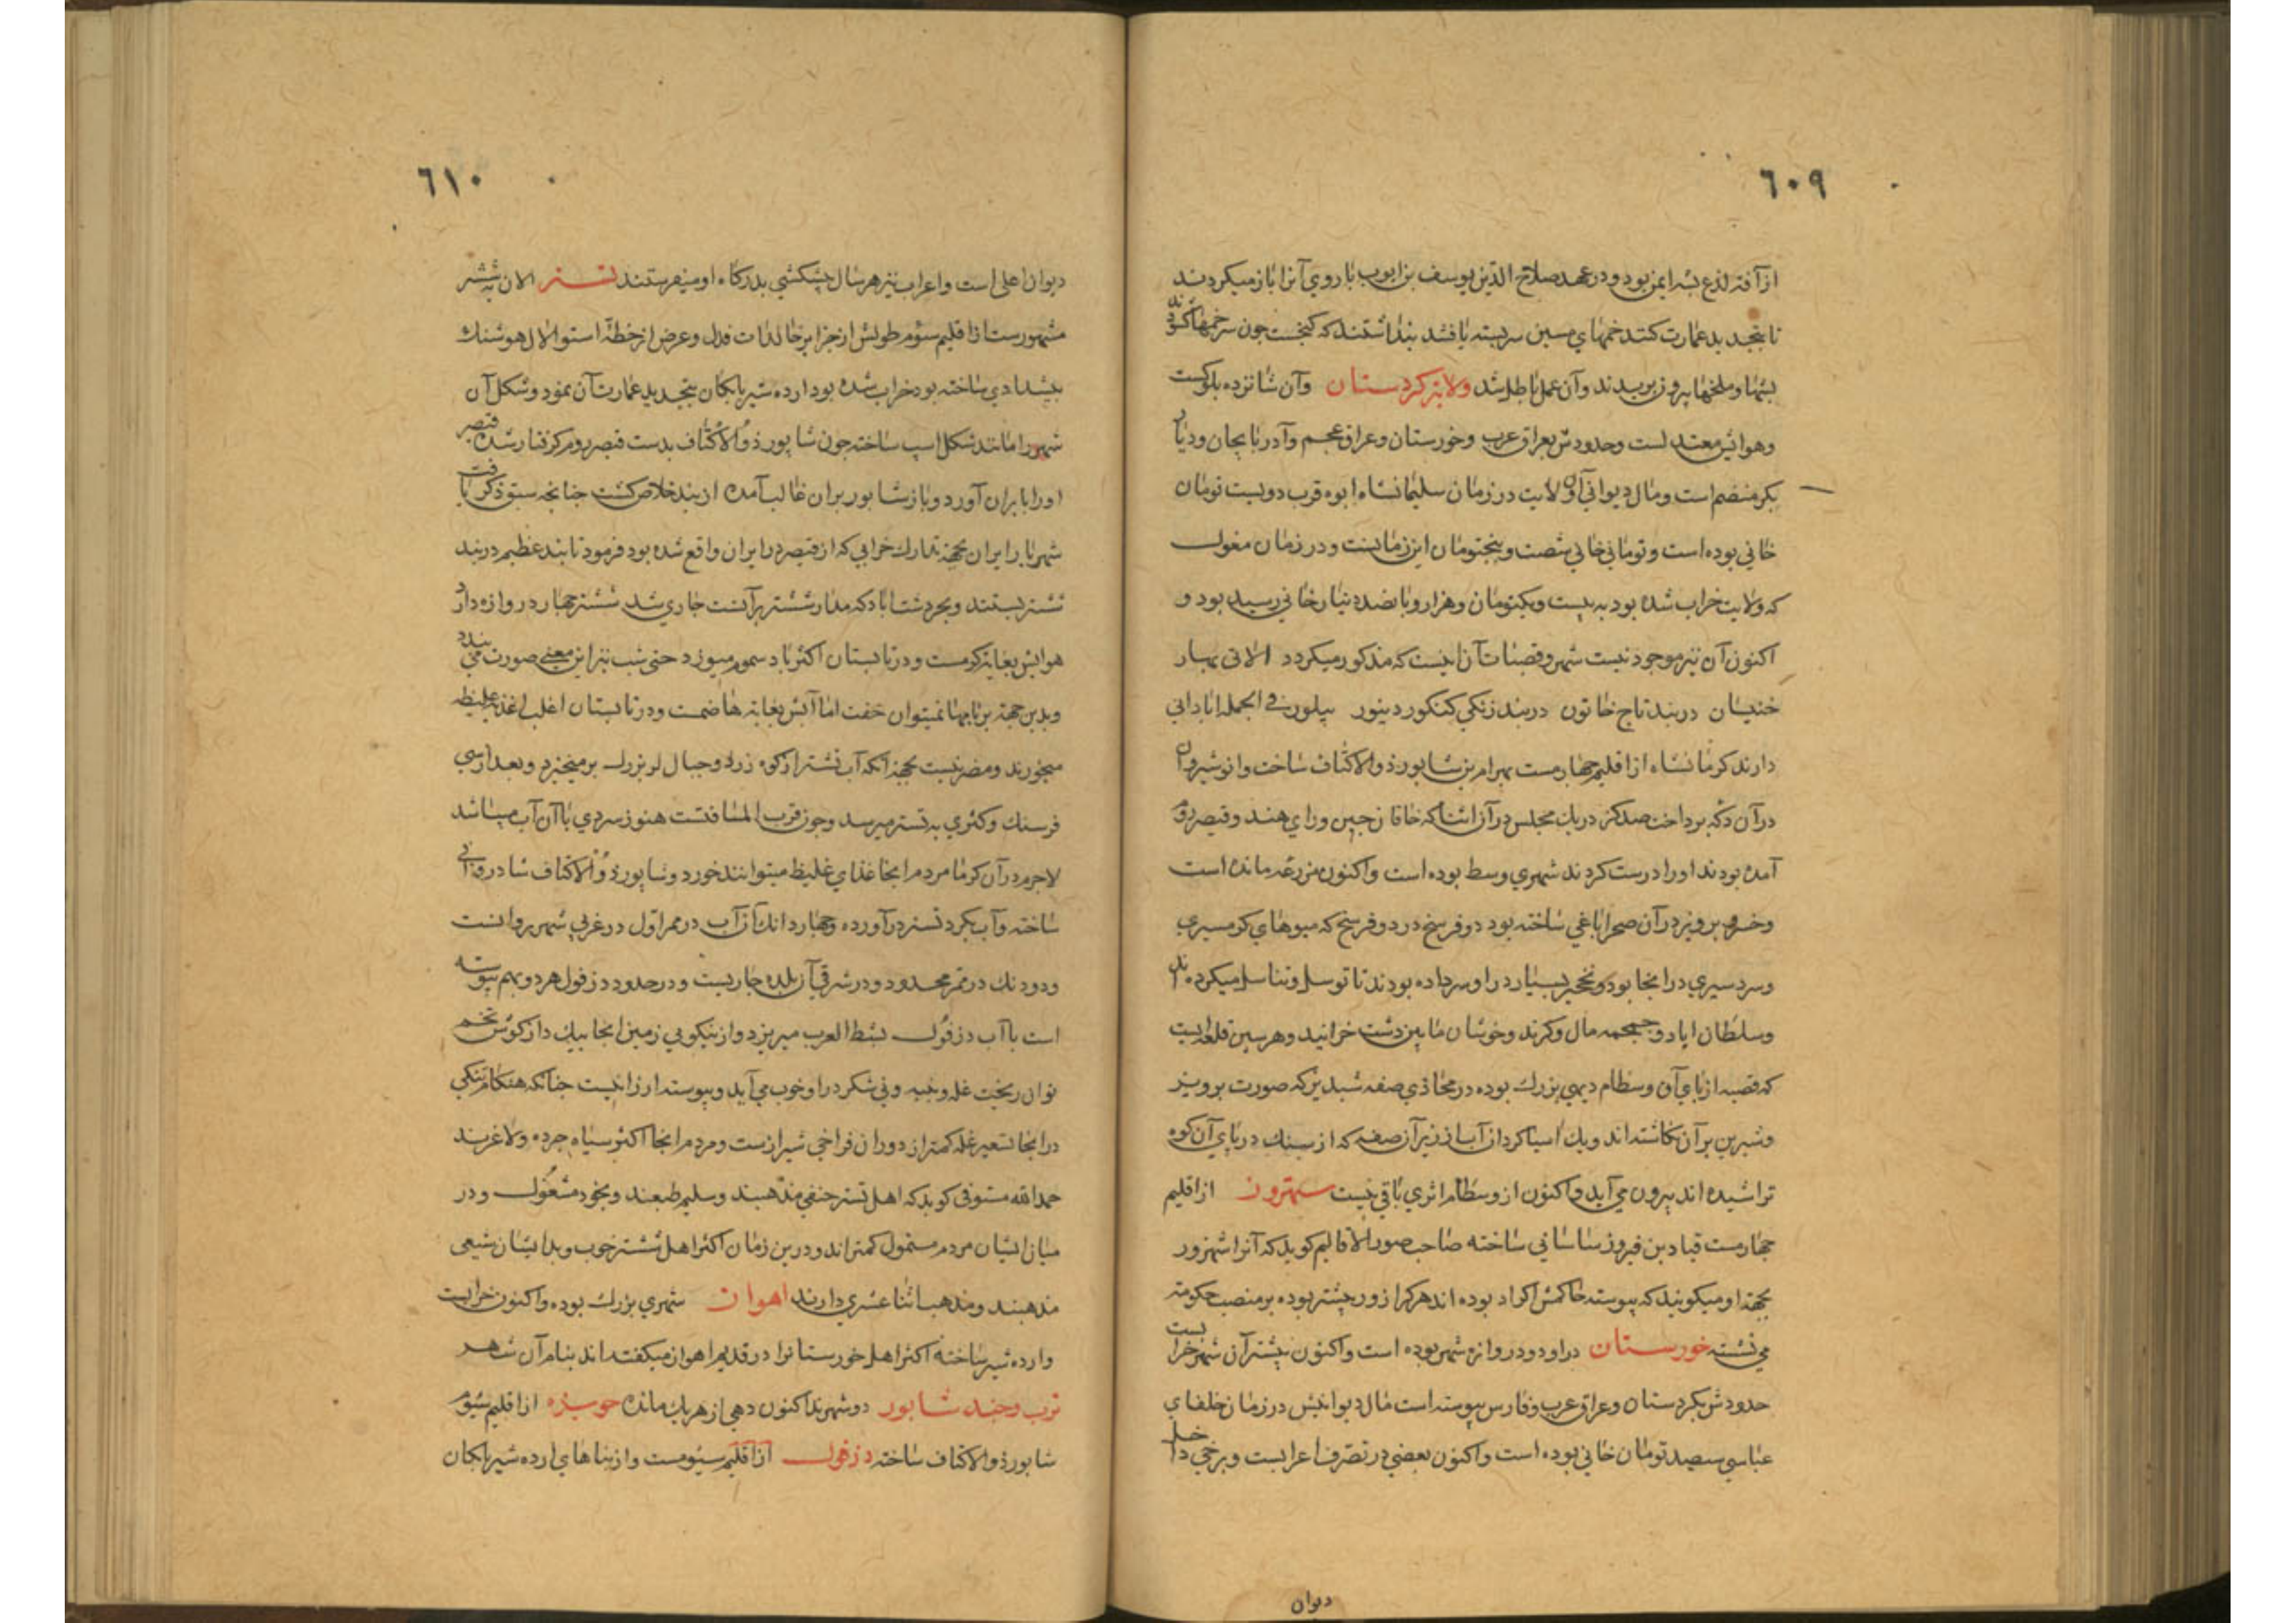 ٦٠٩
از آفة لذع بشه ایمن بود و در عهد صلاح الدین یوسف بن ایوب باروی آنرا باز میکردند
تا بتجدید عمارت کنند خمهای مسین سربسته یافتند پنداشتند که کنجست چون سر خمها کشودند
پشها و ملخها بیرون پریدند و آن عمل باطل شد ولایة کردستان وآن شانزده بلوکست
وهوایش معتدلست وحدودش بعراق عرب وخورستان وعراق عجم وآدربایجان ودیار
بکر منضم است ومال دیوانی آن ولایت در زمان سلیمانشاه ابوه قرب دویست تومان
خانی بوده است وتومانی خانی شصت وپنجتومان این زمانست ودر زمان مغول
که ولایت خراب شده بود به بیست ویکتومان وهزار وپانصد دنیار خانی رسید بود و
اکنون آن نیز موجود نیست شهر وقصبات آن اینست که مذکور میکردد الانی بهار
خنیسان دربند تاج خاتون دربند زنکی کنکور دینور بیلور فی الجمله ابادانی
دارند کرمانشاه از اقلیم چهارمست بهرام بن شابور ذوالاکتاف ساخت وانوشیروان
در آن دکه پرداخت صد کز در یک مجلس در آن اثنا که خاقان چین ورای هند وقیصر روم
آمده بودند اورا درست کردند شهری وسط بوده است واکنون مزرعه مانده است
وخسرو پرویز در آن صحرا باغی ساخته بود دو فرسخ در دو فرسخ که میوهای کرمسیری
وسردسیری در انجا بود ونخچیر بسیار در او سر داده بودند تا توسل وتناسل میکرده اند
وسلطان اباد وجمچمه مال وکرند وخوشان مابین دشت خرانید وهرسین قلعه ایست
که قصبه از پای آن وسطام دیهی بزرک بوده در محاذی صفه شبدیز که صورت پرویز
وشیرین بر آن نکاشته اند ویک اسیا کرد از آب از زیر آن صفه که از سنک در پای آن کوه
تراشیده اند بیرون می آید واکنون از وسطام اثری باقی نیست سهرون از اقلیم
چهارمست قباد بن فیروز ساسانی ساخته صاحب صور الاقالیم کوید که آنرا شهرزور
بجهة او میکویند که پیوسته حاکمش اکراد بوده اند هر کرا زور بیشتر بوده بر منصب حکومة
می نشسته خورستان در او دو دروازه شهر بوده است واکنون بیشتر آن شهر خرابست
حدودش بکردستان وعراق عرب وفارس پیوسته است مال دیوانیش در زمان خلفای
عباسی سیصد تومان خانی بوده است واکنون بعضی در تصرف اعرابست وبرخی داخل
دیوان
٦١٠
دیوان اعلی است واعراب نیز هر سال پیشکشی بدرکاه او میفرستند تستر الان به ششتر
مشهورست از اقلیم سئوم طولش از جزایر خالدات فدل وعرض از خطه استوا لال هوشنک
پیشدادی ساخته بود خراب شده بود اردشیر بابکان بتجدید عمارت آن نمود وشکل آن
شهر را مانند شکل اسپ ساخته چون شاپور ذوالاکتاف بدست قیصر روم کرفتار شد قیصر
اورا بایران آورد وباز شابور بر ان غالب آمده از بند خلاص کشت چنانچه سبق ذکر یافت
شهر یار ایران بجهة تدارک خرابی که از قیصر در ایران واقع شده بود فرمود تا بند عظیم در بند
تستر بستند وبجر دشتاباد که مدار ششتر بر آنست جاری شد ششتر چهار دروازه دارد
هوایش بغایة کرمست ودر تابستان اکثر باد سموم میوزد حتی شب نیز این معنی صورت می بندد
وبدین جهة بر بامها نمیتوان خفت اما آبش بغایة هاضمست ودر تابستان اغلب اغذیه غلیظ
میخورند ومضر نیست بجهة انکه آب تستر از کوه زرد وجبال لر بزرک برمیخیزد وبعد از سی
فرسنک وکثری به تستر میرسد وچون قرب المسافتست هنوز سردی با آن آب میباشد
لاجرم در آن کرما مردم انجا غذای غلیظ میتوانند خورد وشاپور ذوالاکتاف شادروانی
ساخته وآب بکرد تستر در آورده وچهار دانک از آب در ممر اول در غربی شهر روانست
ودو دنک در ممر محدود ودر شرقی آن بلده جاریست ودر حدود دزفول هر دو بهم پیوسته
است با آب دزفول بشط العرب میریزد واز نیکویی زمین انجا بیک دار کوش تخم
توان ریخت غله وپنبه ونی شکر در او خوب می آید وپیوسته ارزانیست چنانکه هنکام تنکی
در انجا تسعیر غله کمتر از دوران فراخی شیرازست ومردم انجا اکثر سیاه چرده ولاغرند
حمد الله مستوفی کوید که اهل تستر حنفی مذهبند وسلیم طبعند وبخود مشغول ودر
میان ایشان مردم متمول کمتراند ودرین زمان اکثر اهل ششتر خوب وبد ایشان شیعی
مذهبند ومذهب اثنا عشری دارند اهوان شهری بزرک بوده واکنون خرابست
وارده شیر ساخته اکثر اهل خورستانرا در قدیم اهواز میکفته اند بنام آن شهر
ترب وجند شابور دو شهرند اکنون دهی از هر یک مانده حویزه از اقلیم سئوم
شابور ذوالاکتاف ساخته دزفول از اقلیم سئومست واز بناهای ارده شیر بابکان